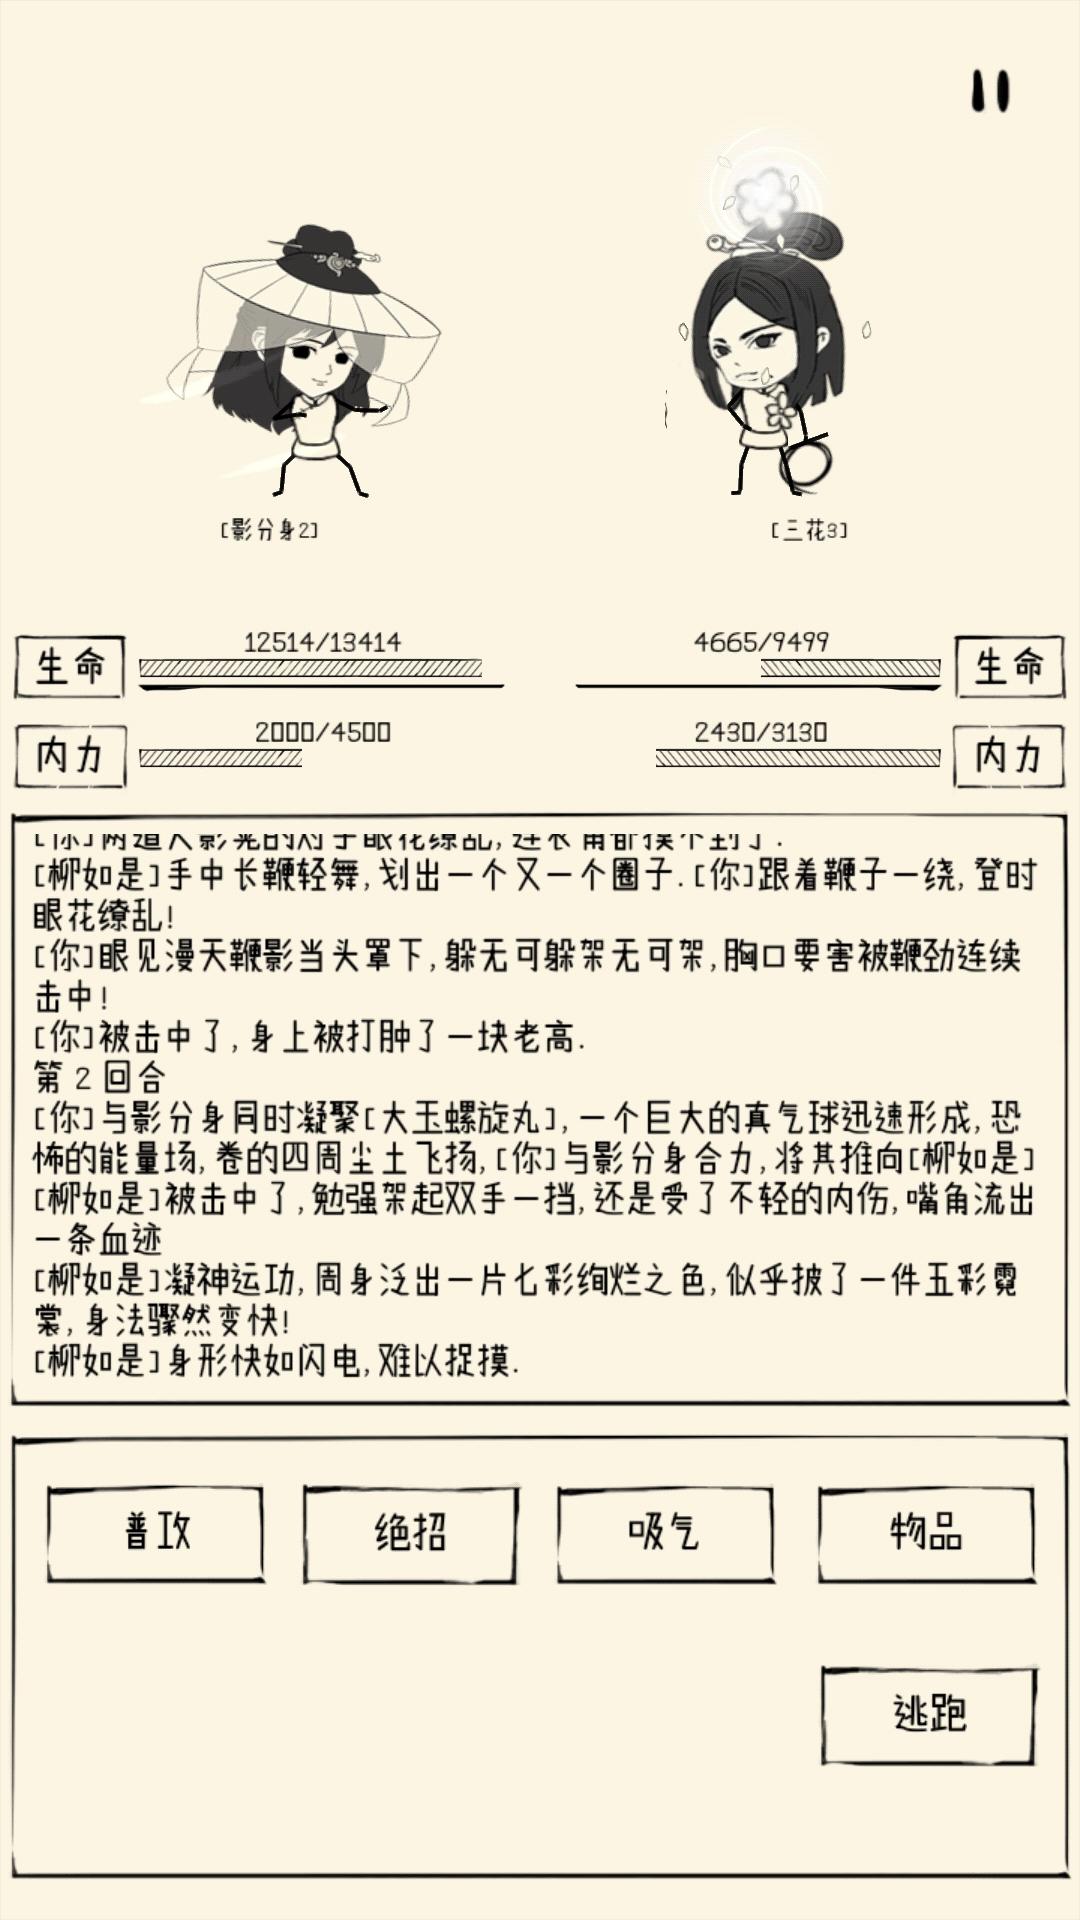 [影分身2]
[三花3]
12514/13414
4665/9499
生命
生命
2000/4500
2430/3130
内力
内力
[你]两道人影晃的对手眼花缭乱,连衣角都摸不到了.
[柳如是]手中长鞭轻舞,划出一个又一个圈子.[你]跟着鞭子一绕,登时
眼花缭乱!
[你]眼见漫天鞭影当头罩下,躲无可躲架无可架,胸口要害被鞭劲连续
击中!
[你]被击中了,身上被打肿了一块老高.
第2回合
[你]与影分身同时凝聚[大玉螺旋丸],一个巨大的真气球迅速形成,恐
怖的能量场,卷的四周尘土飞扬,[你]与影分身合力,将其推向[柳如是]
[柳如是]被击中了,勉强架起双手一挡,还是受了不轻的内伤,嘴角流出
一条血迹
[柳如是]凝神运功,周身泛出一片七彩绚烂之色,似乎披了一件五彩霓
裳,身法骤然变快!
[柳如是]身形快如闪电,难以捉摸.
普攻
绝招
吸气
物品
逃跑